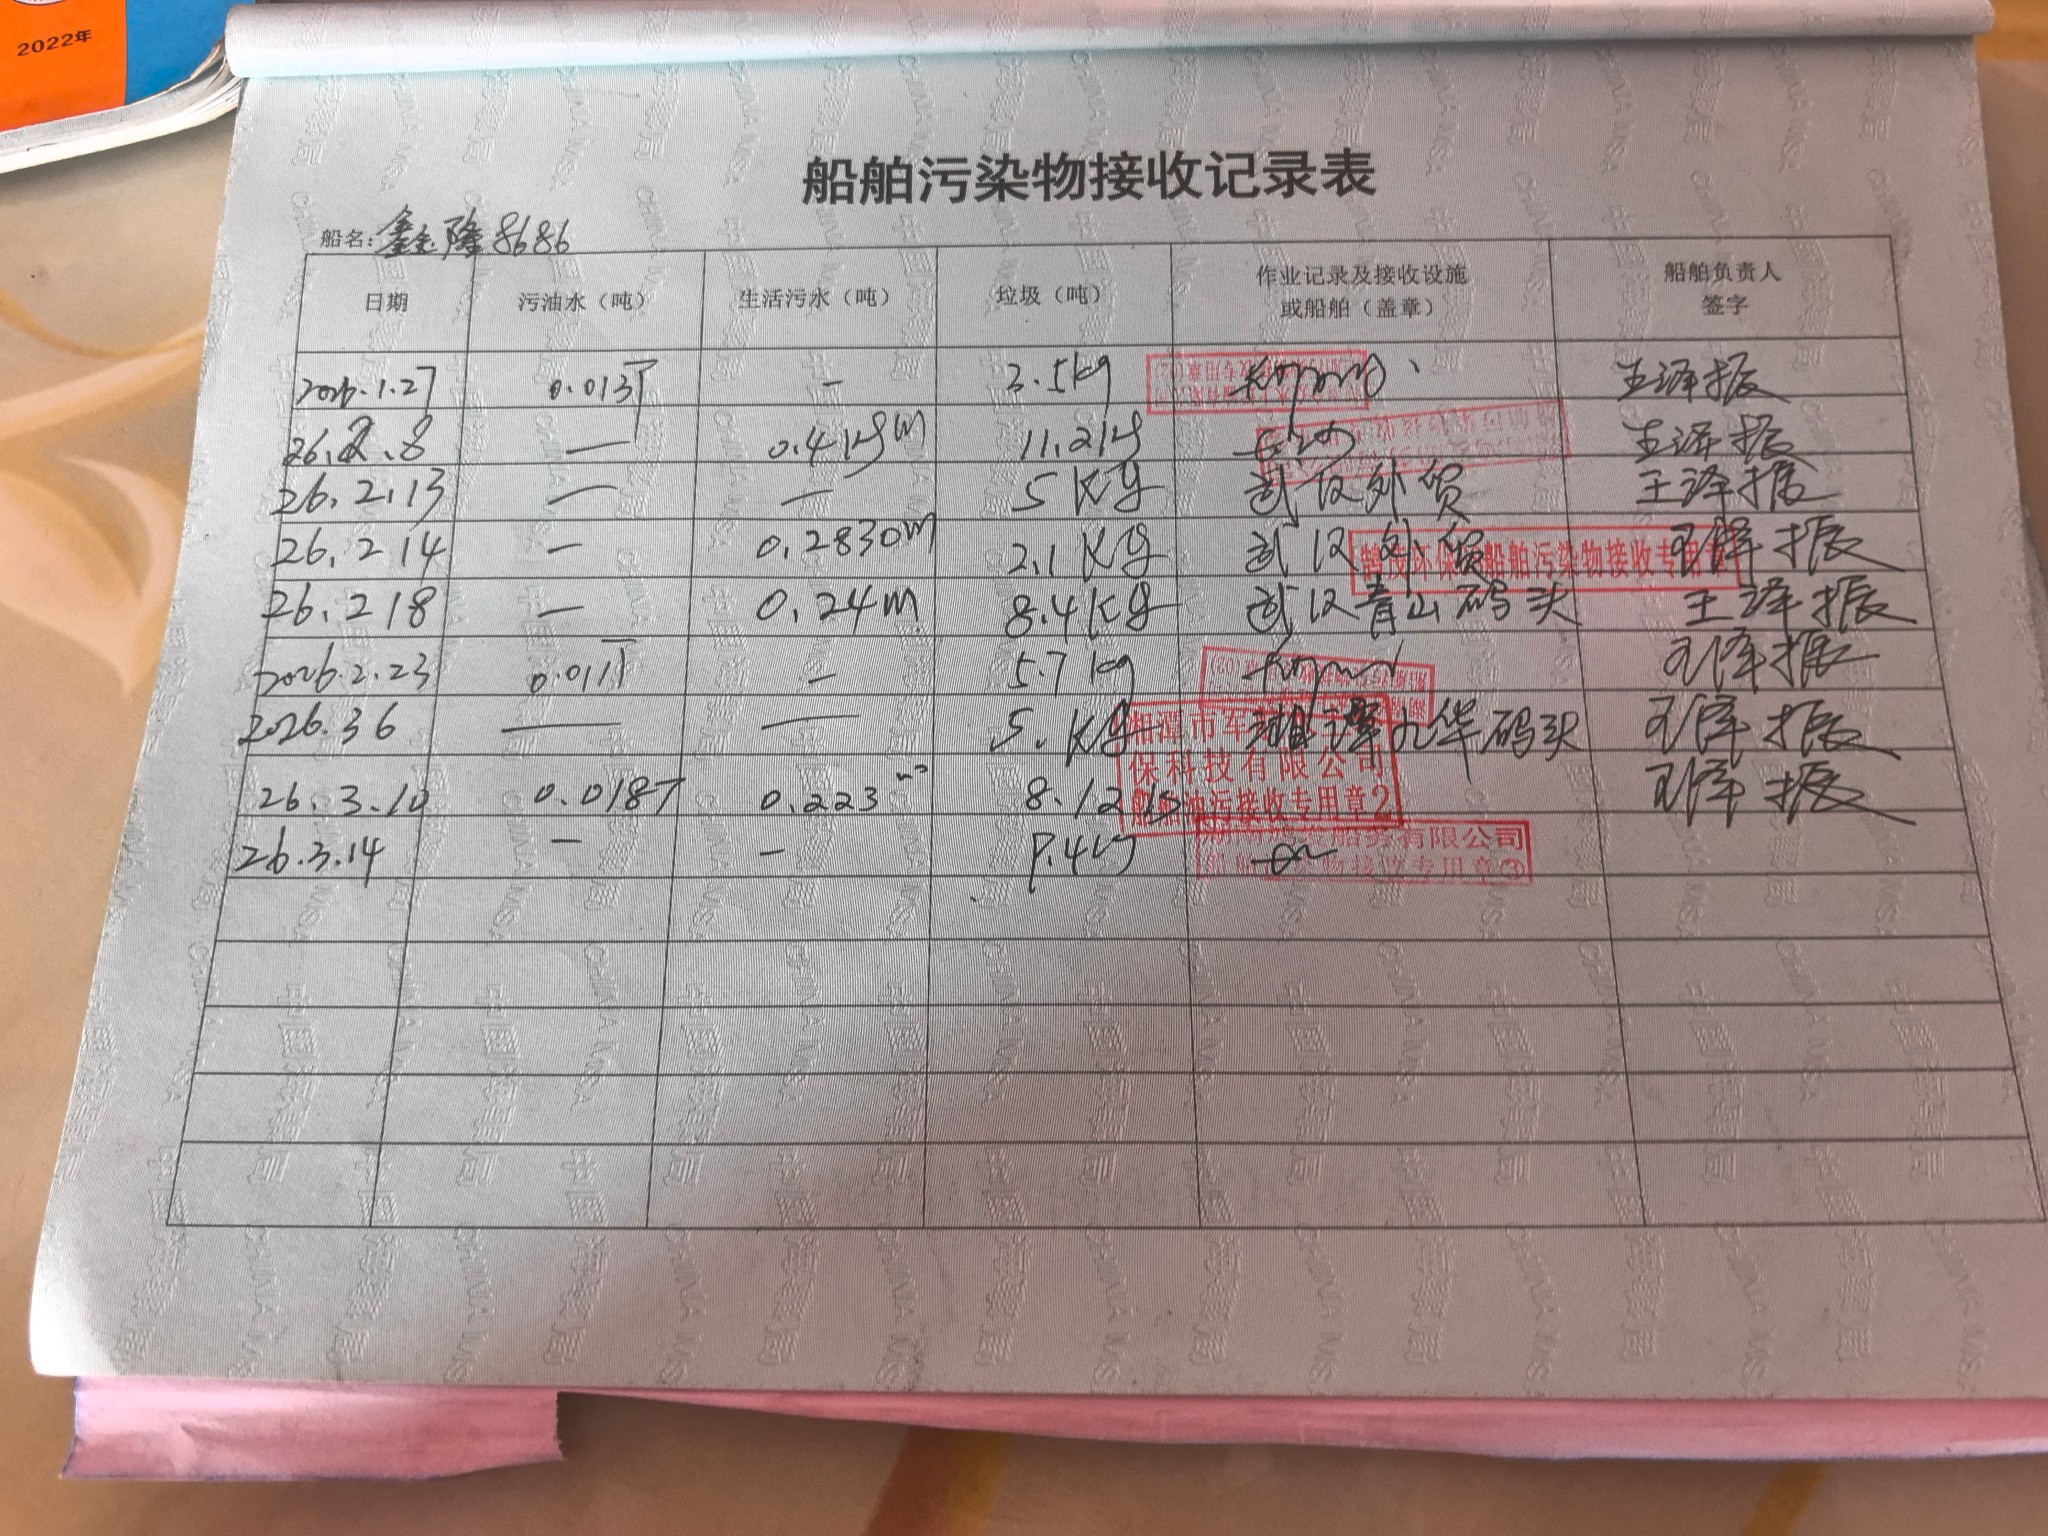 2022年
船舶污染物接收记录表
船名: 鑫隆8686
日期 污油水（吨） 生活污水（吨） 垃圾（吨） 作业记录及接收设施或船舶（盖章） 船舶负责人签字
2026.1.27 0.013T — 3.5kg 王泽振
26.2.8 — 11.2kg 王泽振
26.2.13 — — 5Kg 武汉外贸 王泽振
26.2.14 — 0.2830m 2.1Kg 武汉外贸 王泽振
船舶污染物接收专用章
26.2.18 — 0.24m 8.4Kg 武汉青山码头 王泽振
2026.2.23 0.011T — 5.7kg 王泽振
2026.3.6 — — 5.Kg 湘潭九华码头 王泽振
湘潭市
保科技有限公司
船舶油污接收专用章2
26.3.10 0.018T 0.223m³ 8.12 王泽振
26.3.14 — —
有限公司
接收专用章③